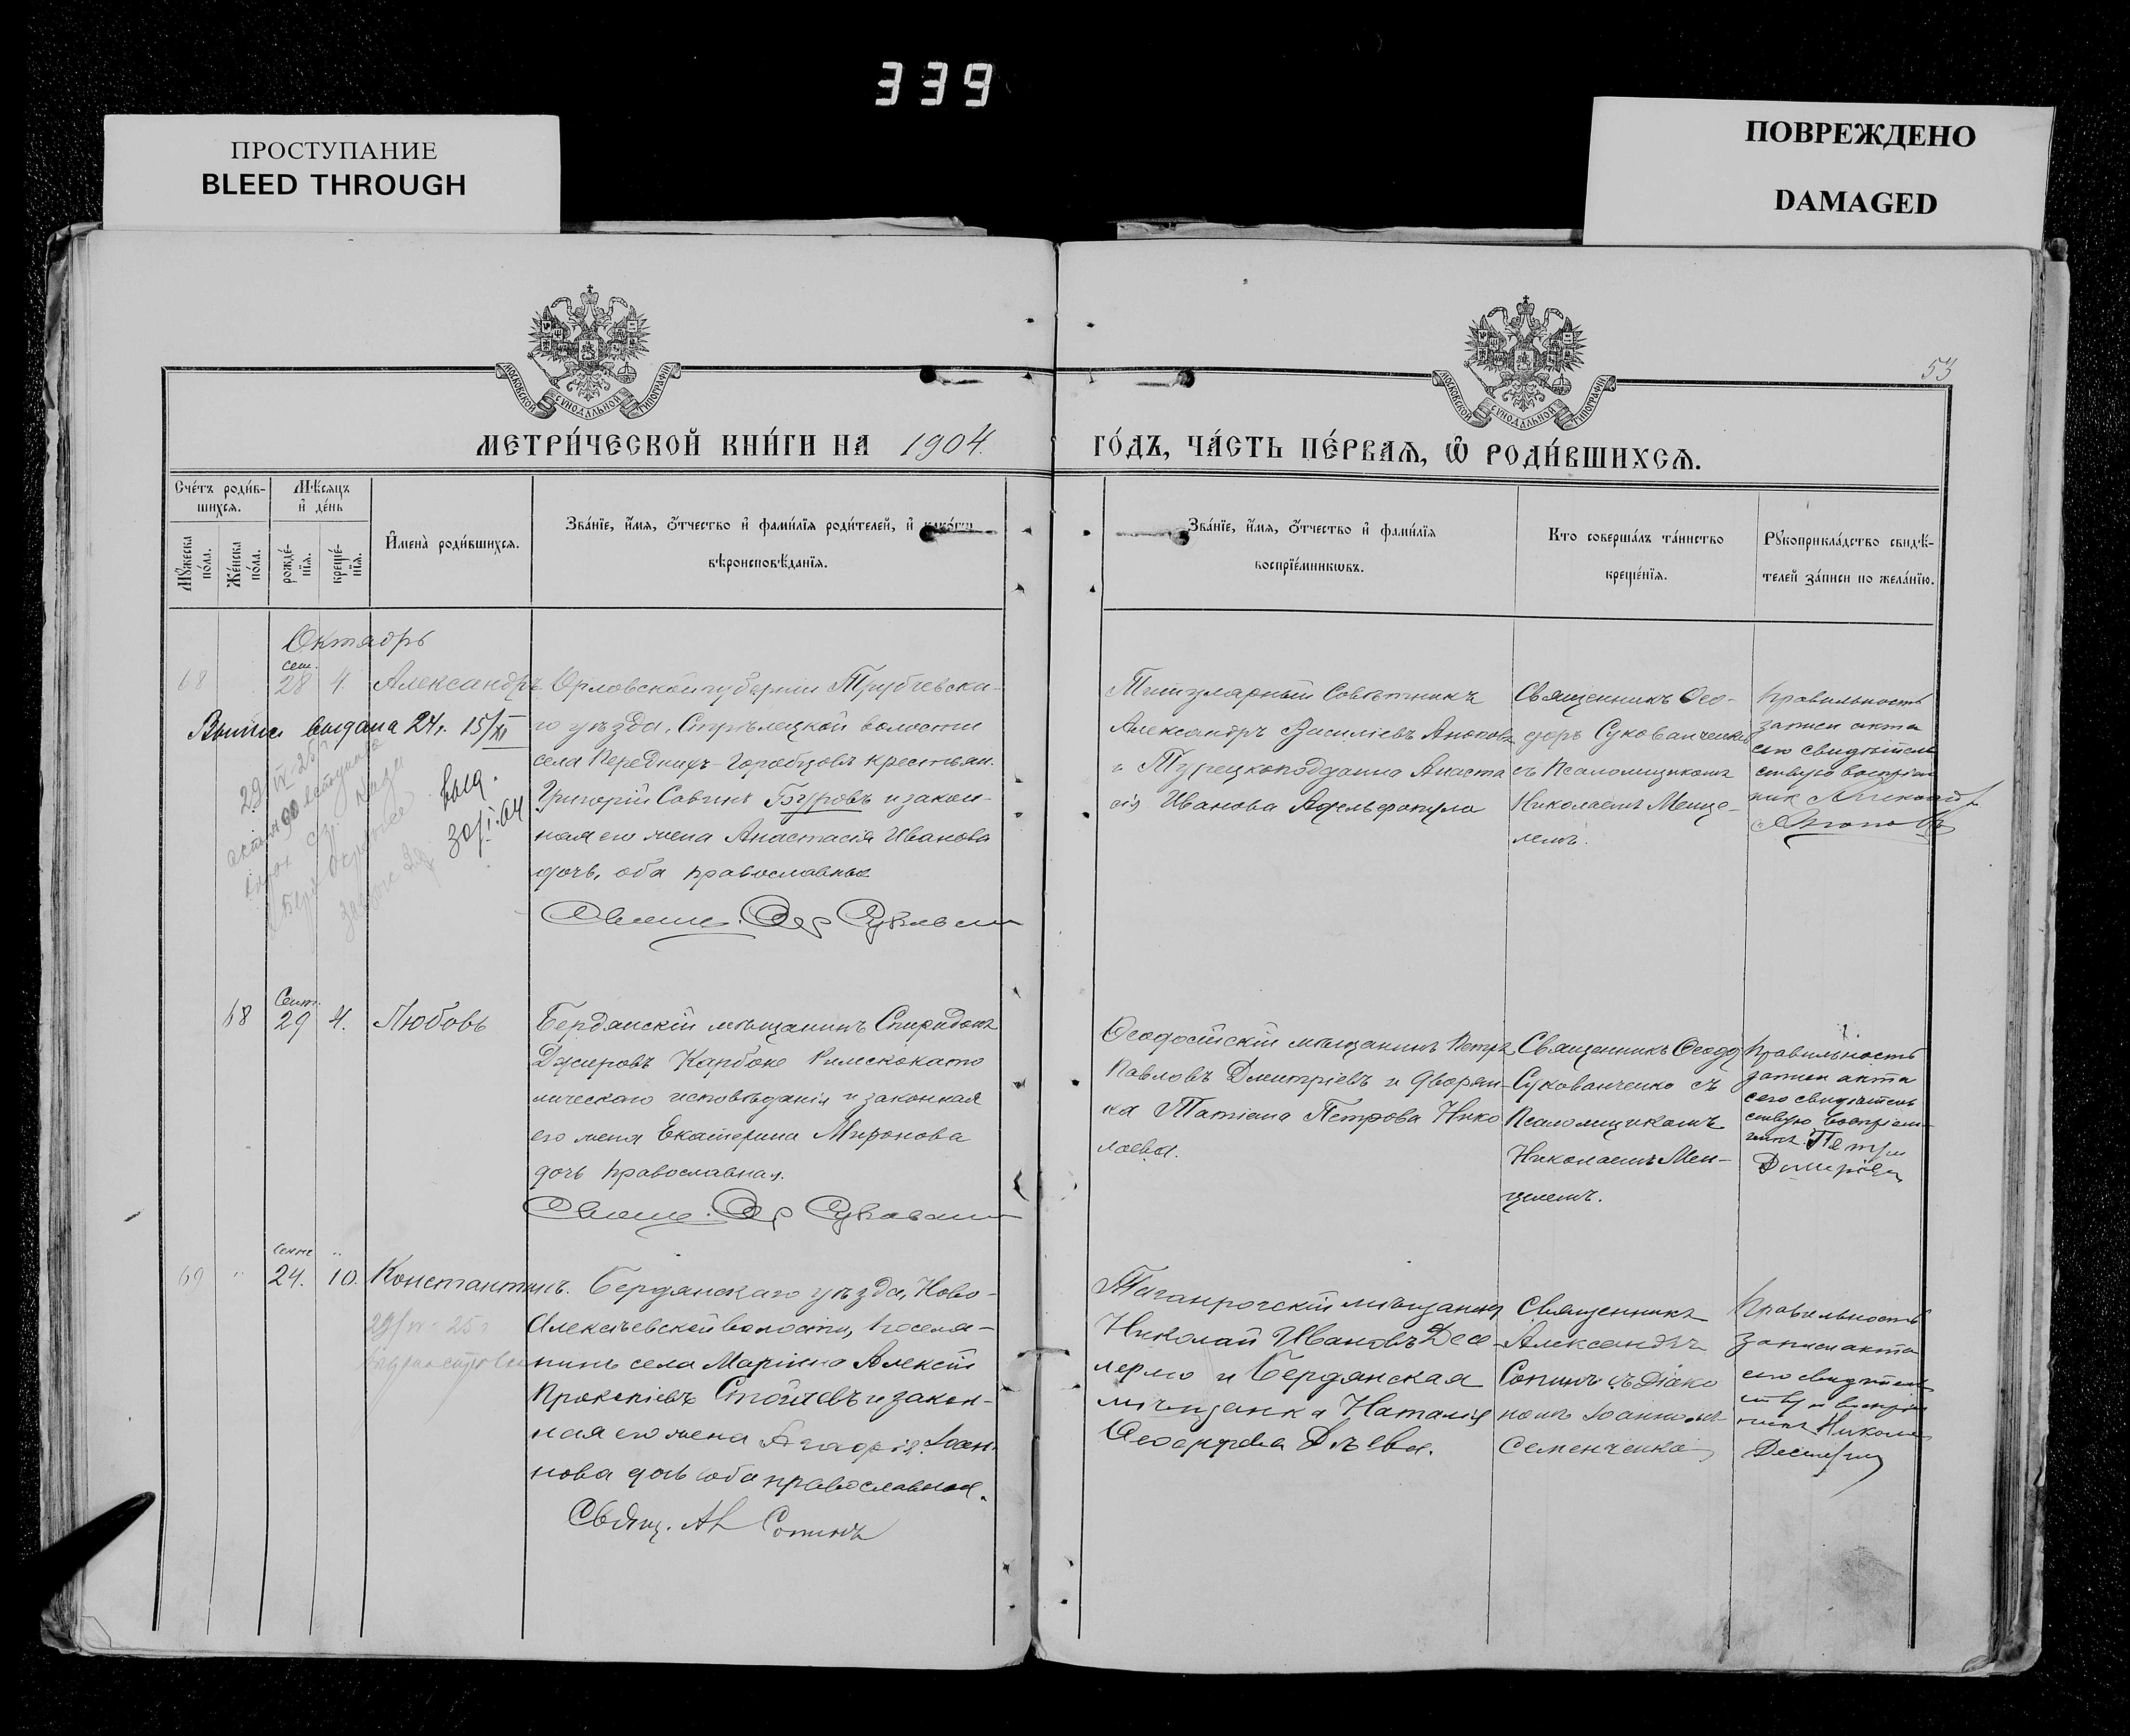 339
ПРОСТУПАНИЕ
BLEED THROUGH
ПОВРЕЖДЕНО
DAMAGED
МОСКОВСКОЙ СѴНОДАЛЬНОЙ ТИПОГРАФІИ
МОСКОВСКОЙ СѴНОДАЛЬНОЙ ТИПОГРАФІИ
53
МЕТРИ́ЧЕСКОЙ КНИ́ГИ НА 1904.
ГО́ДЪ, ЧА́СТЬ ПЕ́РВАѦ, Ѽ РОДИ́ВШИХСѦ.
Сче́тъ роди́в-
шихсѧ.
Мѣ́сѧцъ
и҆ де́нь
Мꙋ́жеска по́ла.
Же́нска по́ла.
рожде́-
нїѧ.
креще́-
нїѧ.
И҆мена̀ роди́вшихсѧ.
Зва́нїе, и҆́мѧ, ѻ҆́тчество и҆ фами́лїѧ роди́телей, и҆ како́гѡ
вѣроисповѣ́данїѧ.
Зва́нїе, и҆́мѧ, ѻ҆́тчество и҆ фами́лїѧ
воспрїе́мникѡвъ.
Кто̀ соверша́лъ та́инство
креще́нїѧ.
Рꙋкоприкла́дство свидѣ́-
телей за́писи по жела́нїю.
Октябрь
68
сен.
28
4.
Александръ
Орловской губерніи Трубчевска-
го уѣзда, Стрѣлецкой волости
села Переднихъ-Горобцовъ крестьян.
Григорій Савинъ Бугровъ и закон-
ная его жена Анастасія Иванова
дочь, оба православные
Свящ. Ѳеод
выдана 24 г. 15/XI
29/IV-25
Выд.
30/I.04
Титулярный Совѣтникъ
Александръ Василіевъ Аноповъ
и Турецкоподданна Анаста
сія Иванова
Священникъ Ѳео-
доръ Сукованченко
съ Псаломщикомъ
Николаемъ Менце-
лемъ.
Правильность
записи акта
сего свидѣтель
ствую воспріем
ник Александр
68
Сент.
29
4.
Любовь
Бердянскій мѣщанинъ Спиридонъ
Карбоне Римскокато
лическаго исповѣданія и законная
его жена Екатерина Миронова
дочь православная.
Свящ. Ѳеод
Ѳеодосійскій мѣщанинъ Петръ
Павловъ Дмитріевъ и дворян-
ка Татіана Петрова Нико
лаева.
Священникъ Ѳеод
Сукованченко съ
Псаломщикомъ
Николаемъ Мен-
целемъ.
Правильность
записи акта
сего свидѣтель
ствую воспріем-
никъ Петр
69
"
сент
24.
10.
Константинъ.
29/IV-25 г
Бердянскаго уѣзда, Ново-
Алексѣевской волости, поселя-
нинъ села Маріино Алексій
Прокопіевъ Стойчевъ и закон-
ная его жена Агафія Іоан-
нова дочь оба православныя.
Свящ. Ал Сопинъ
Таганрогскій мѣщанинъ
Николай Ивановъ Дес
и Бердянская
мѣщанка Наталія
Священникъ
Александръ
Сопинъ съ Діако
номъ Іоанномъ
Семенченко
Правильность
записи акта
сего свидѣтель
ствую воспріем
никъ Николай